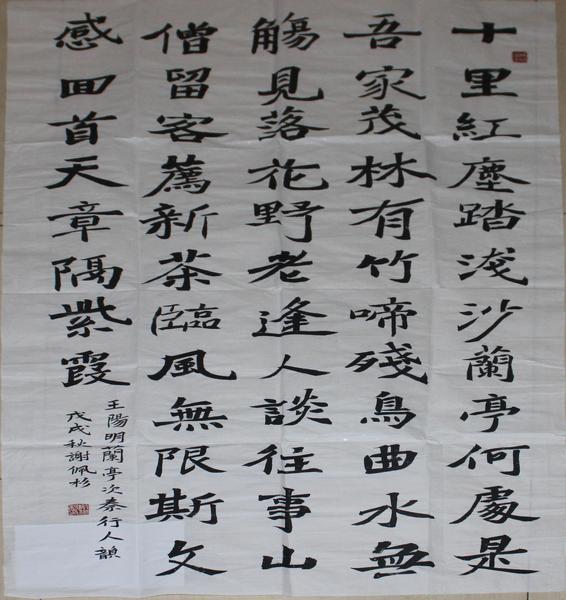 十里紅塵踏淺沙蘭亭何處是
吾家茂林有竹啼殘鳥曲水無
觴見落花野老逢人談往事山
僧留客薦新茶臨風無限斯文
感回首天章隔紫霞
王陽明蘭亭次秦行人韻
戊戌秋謝佩杉